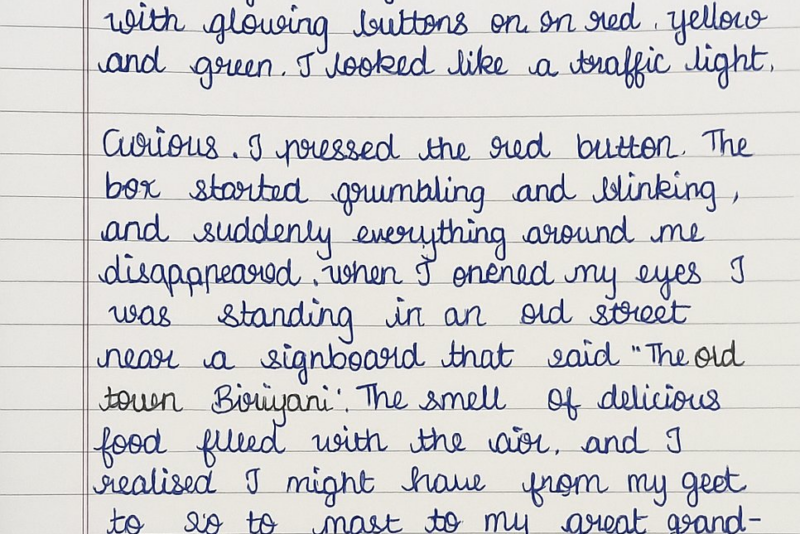 with glowing buttons on on red, yellow
and green. I looked like a traffic light.
Curious. I pressed the red button. The
box started grumbling and blinking,
and suddenly everything around me
disappeared. when I opened my eyes I
was standing in an old street
near a signboard that said "The old
town Biriyani". The smell of delicious
food filled with the air, and I
realised I might have from my
to to mast to my great grand-